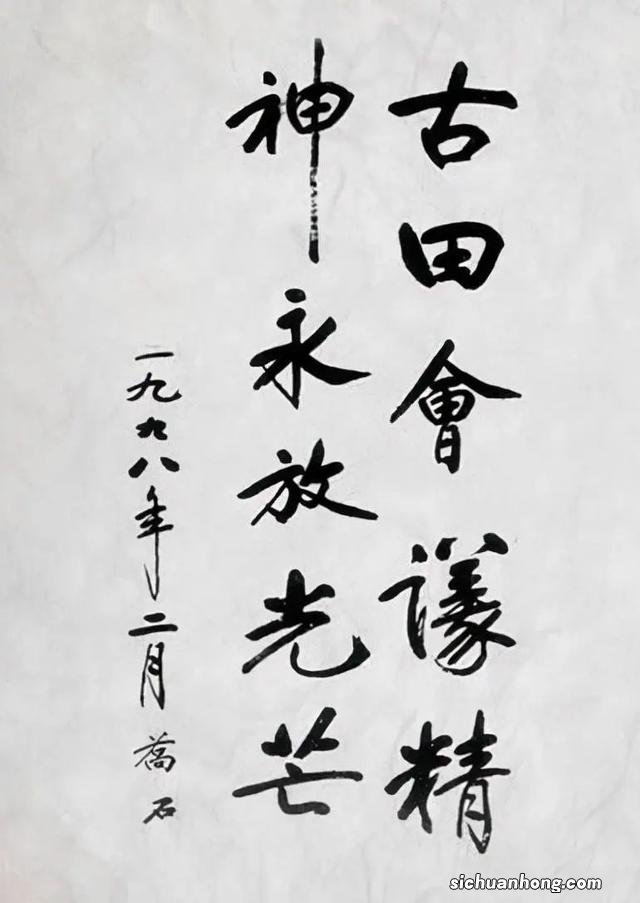 古田會議精
神永放光芒
一九九八年二月 喬石
sichuanhong.com